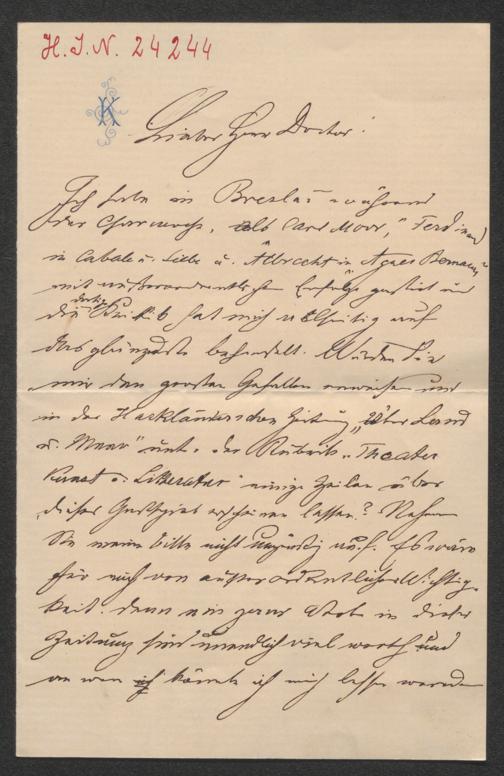 H. I. N. 24244
K
Lieber Herr Doctor!
Ich habe in Breslau während
der Charwoche, als Carl Moor, "Ferdinand
in Cabale u. Liebe u. "Albrecht in Agnes Bernauer"
mit außerordentlichem Erfolge gastirt und
die dortige Kritik hat mich allseitig auf
das glänzendste behandelt. Würden Sie
mir den großen Gefallen erweisen und
in der Hackländerschen Zeitung "Über Land
u. Meer" unter der Rubrik "Theater
Kunst u. Litteratur" einige Zeilen über
dieses Gastspiel erscheinen lassen? Nehmen
Sie meine Bitte nicht ungünstig auf. Es wäre
für mich von außerordentlicher Wichtig-
keit. Denn ein paar Worte in dieser
Zeitung sind unendlich viel werth und
an wen könnte ich mich besser wenden